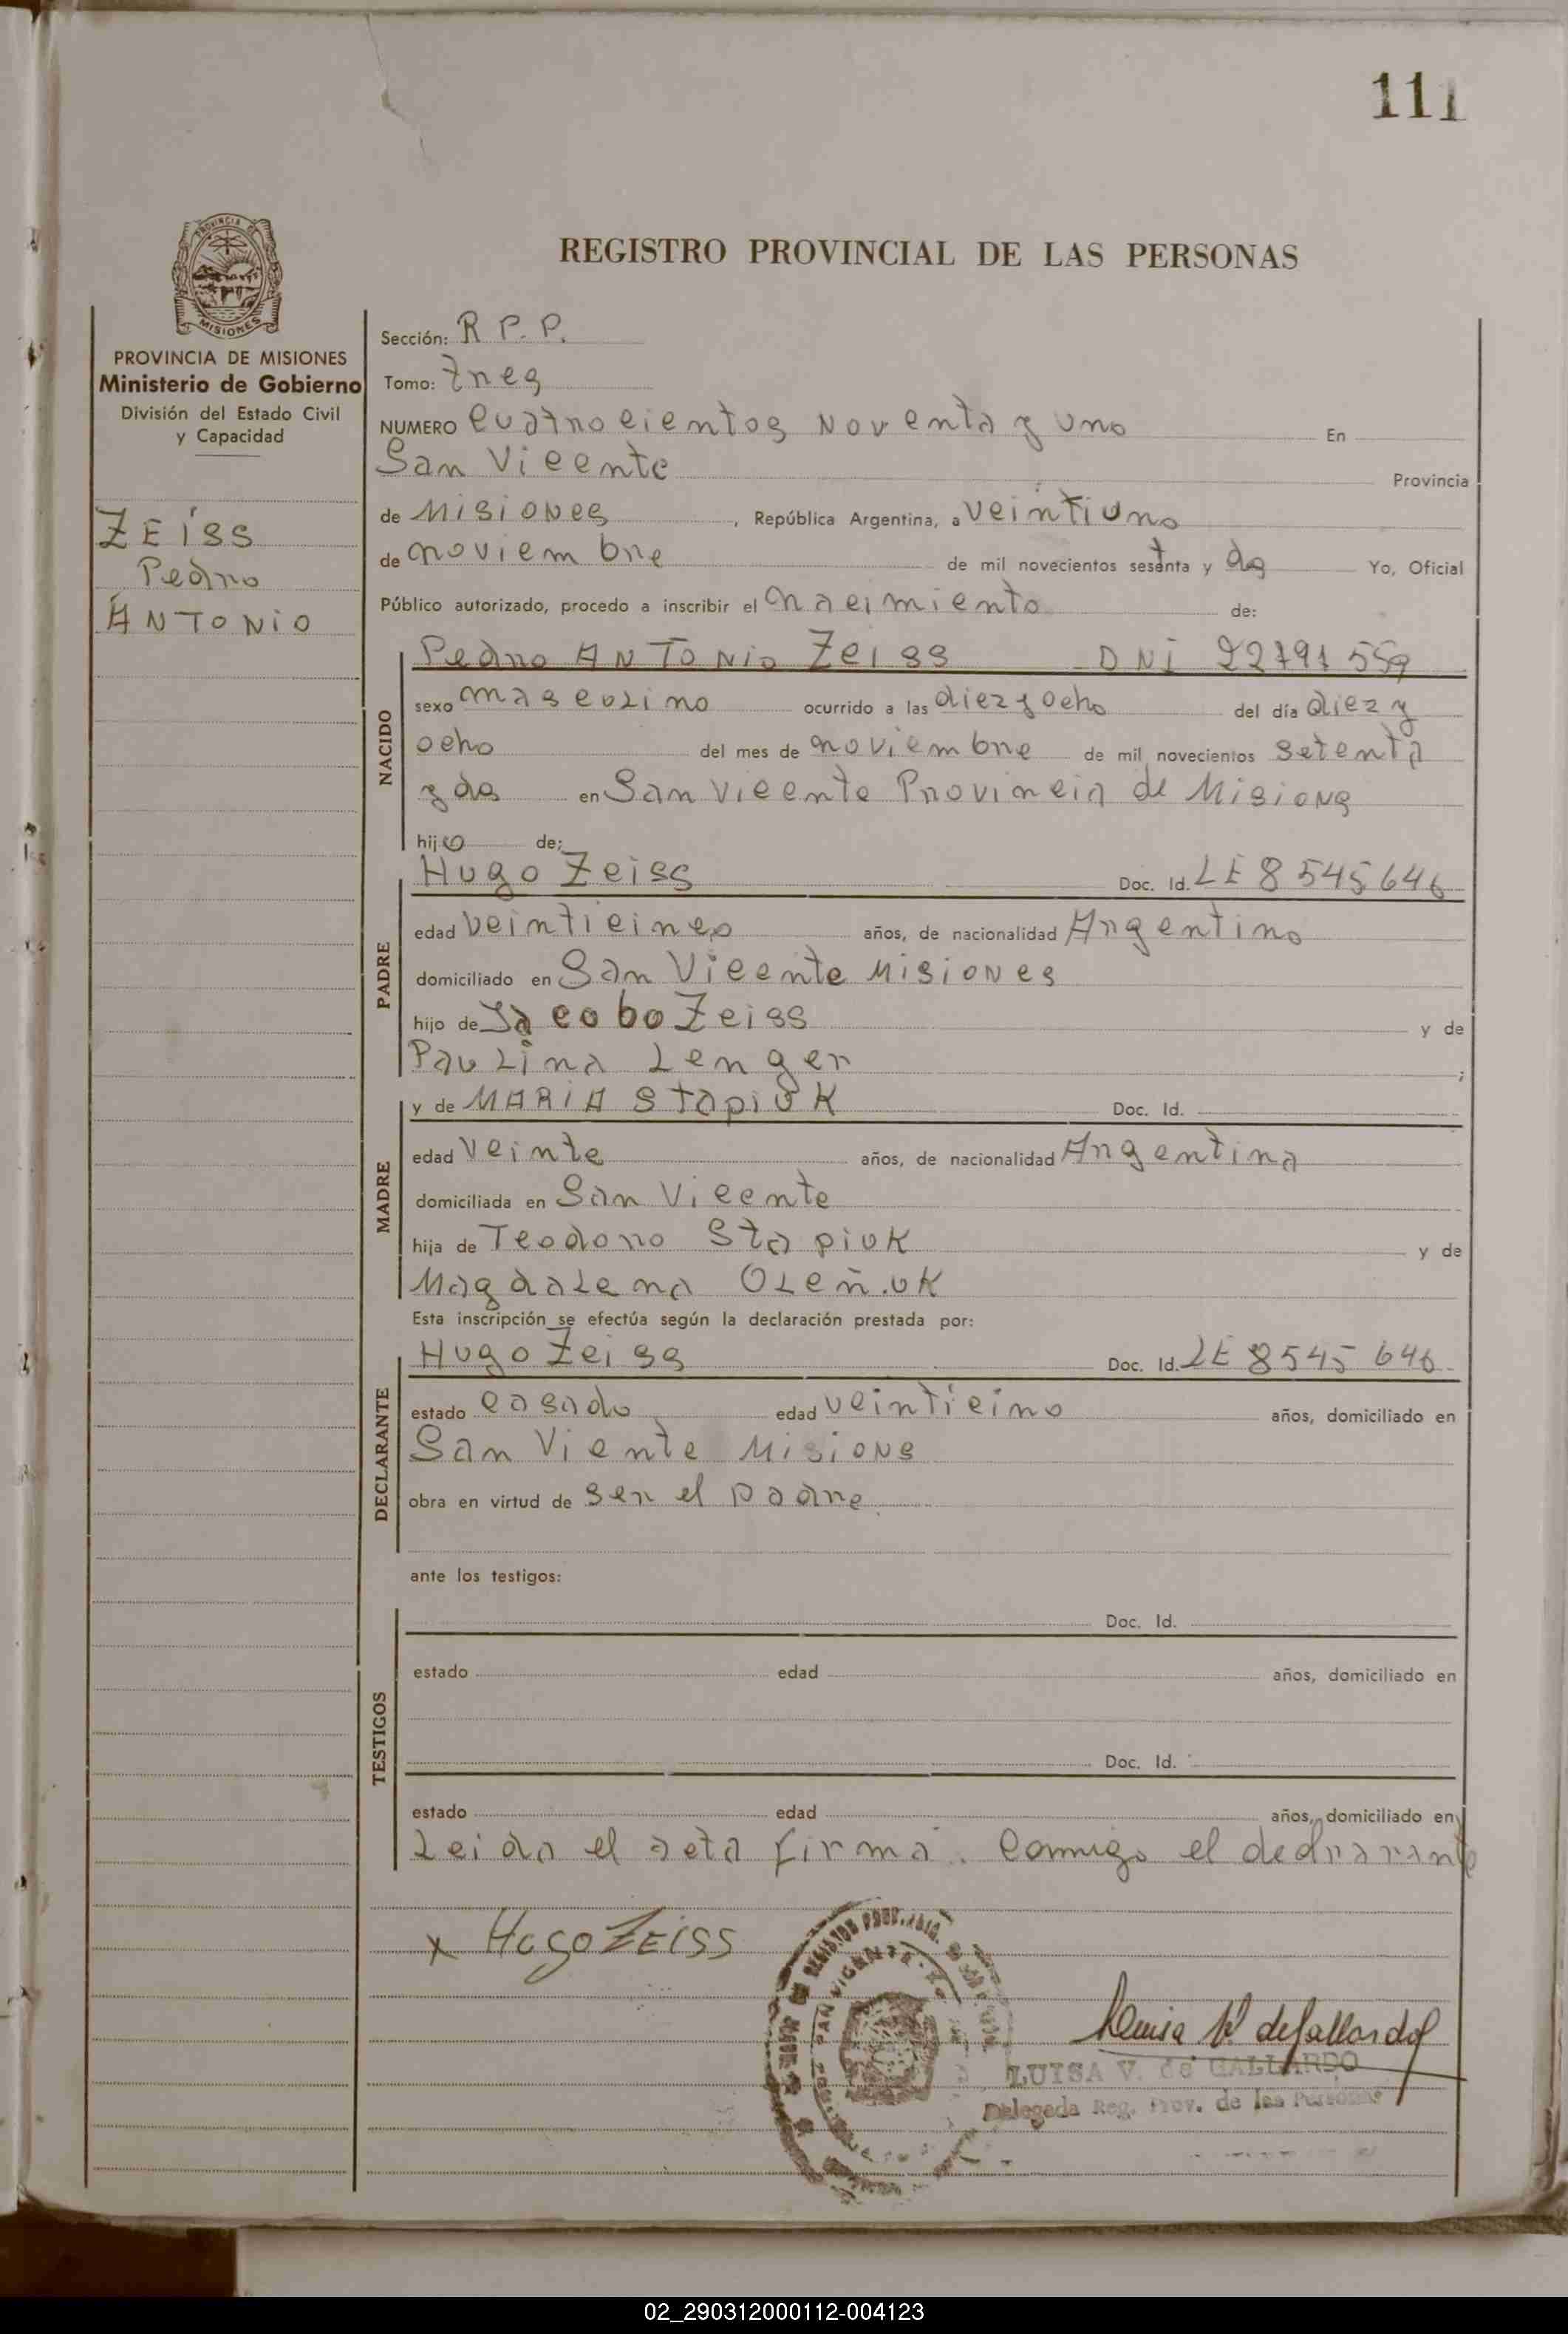 111
REGISTRO PROVINCIAL DE LAS PERSONAS
PROVINCIA DE MISIONES
Ministerio de Gobierno
División del Estado Civil
y Capacidad
ZEiss
Pedro
ANTONiO
Sección: R P. P.
Tomo: tres
NUMERO cuatrocientos Noventa y uno En
San Vicente Provincia
de Misiones, República Argentina, a veintiuno
de noviembre de mil novecientos setenta y dos Yo, Oficial
Público autorizado, procedo a inscribir el nacimiento de:
NACIDO
Pedro ANTONio Zeiss DNi 22791559
sexo masculino ocurrido a las diez y ocho del día diez y
ocho del mes de noviembre de mil novecientos setenta
y dos en San Vicente Provincia de Misions
hijo de:
PADRE
Hugo Zeiss Doc. Id. LE 8545646
edad veinticinco años, de nacionalidad Argentino
domiciliado en San Vicente Misiones
hijo de Jacobo Zeiss y de
Paulina Lenger ;
MADRE
y de MARiA Stapiuk Doc. Id.
edad veinte años, de nacionalidad Argentina
domiciliada en San Vicente
hija de Teodoro Stapiuk y de
Magdalena Oleñuk
Esta inscripción se efectúa según la declaración prestada por:
DECLARANTE
Hugo Zeiss Doc. Id. LE 8545 646
estado casado edad veinticino años, domiciliado en
San Viente Misions
obra en virtud de ser el padre
ante los testigos:
TESTIGOS
Doc. Id.
estado edad años, domiciliado en
Doc. Id.
estado edad años, domiciliado en
Leida el acta firma comigo el declarante
x Hugo ZEiss
Luisa V. de Gallardo
LUISA V. de GALLARDO
Delegada Reg. Prov. de las Personas
02_290312000112-004123